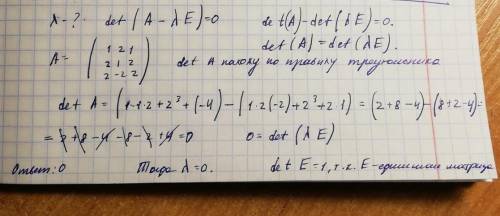 λ - ? det (A - λE) = 0 det(A) - det(λE) = 0.
det(A) = det(λE).
A = ( 1 2 1
2 1 2
2 -2 2 ) det A нахожу по правилу треугольника
det A = (1·1·2 + 2³ + (-4)) - (1·2(-2) + 2³ + 2·1) = (2+8-4) - (8+2-4) =
= 2 + 8 - 4 - 8 - 2 + 4 = 0 0 = det (λE)
Ответ: 0 Тогда λ = 0. det E = 1, т.к. E - единичная матрица